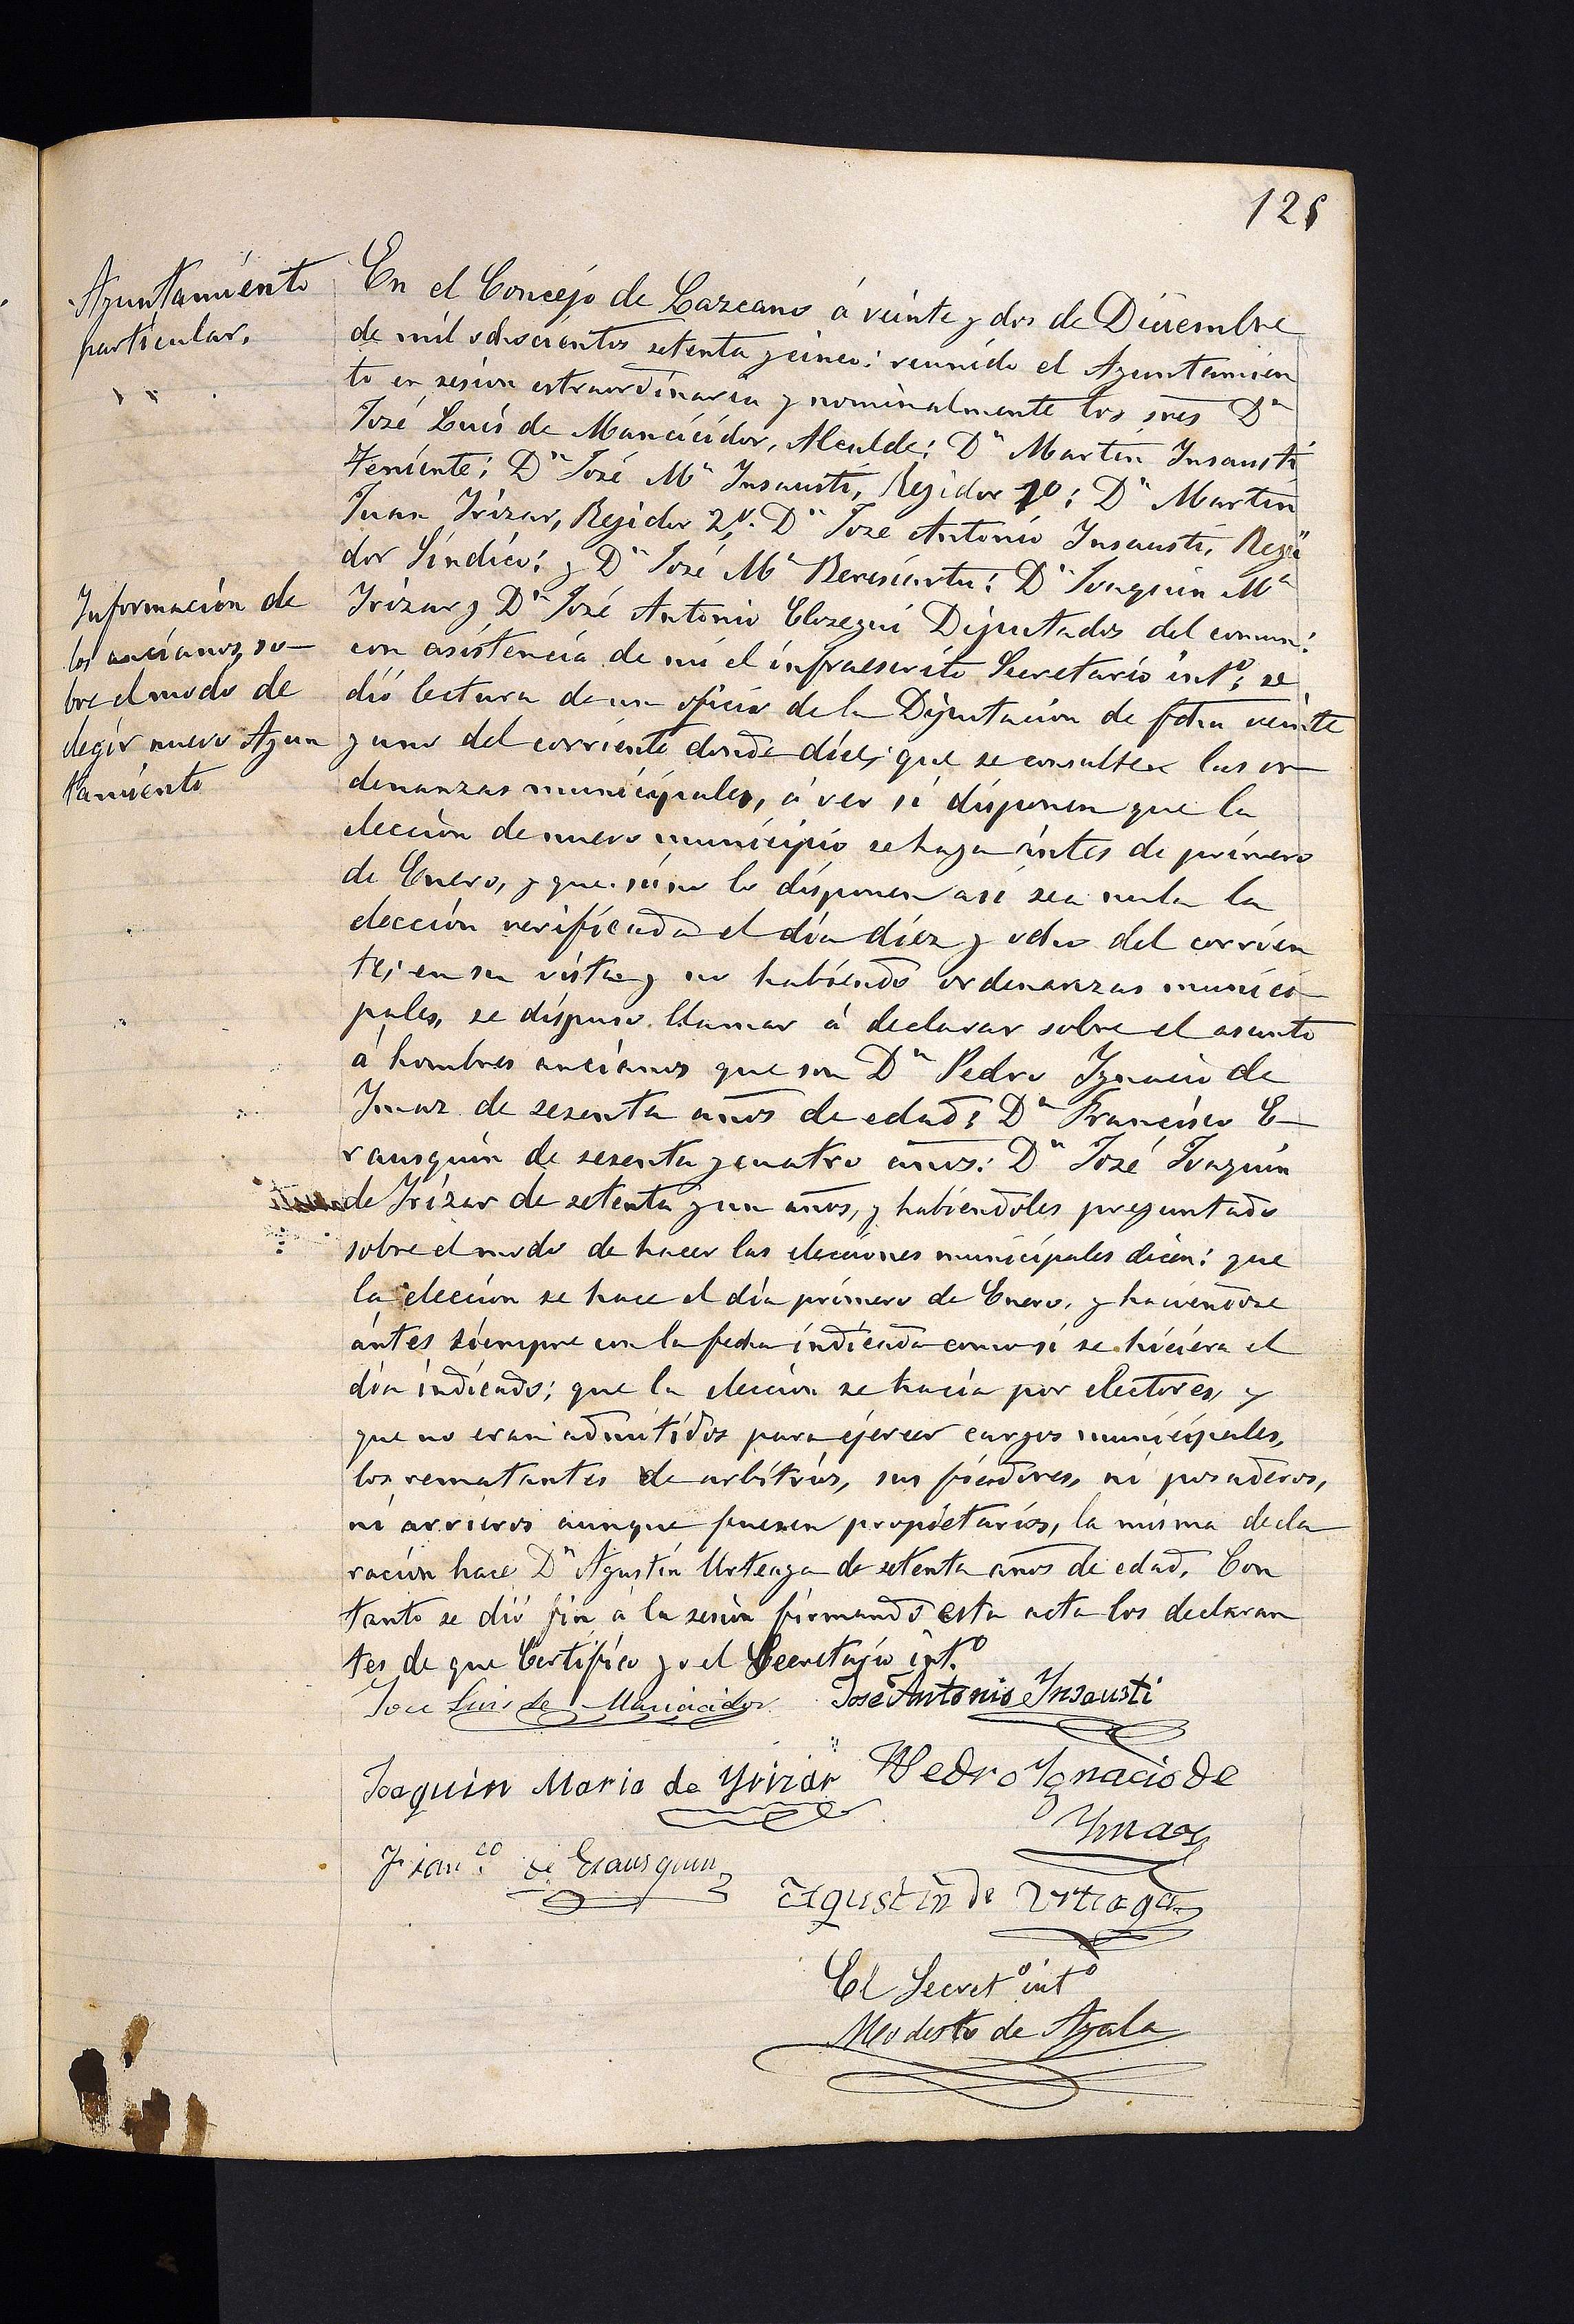 Ayuntamiento
particular.
En el Concejo de Lazcano á veinte y dos de Diciembre
de mil ochocientos setenta y cinco: reunido el Ayuntamien
to en sesion estraordinaria y nominalmente los sres Dn
José Luis de Mancicidor, Alcalde; Dn Martin Insausti
Teniente; Dn José Ma Insausti, Regidor 1o; Dn Martin
Juan Irizar, Regidor 2o. Dn Jose Antonio Insausti, Regi
dor Síndico; y Dn José Ma Beresiartu; Dn Joaquin Ma
Irizar y Dn José Antonio Elosegui Diputados del comun;
con asistencia de mi el infraescrito Secretario into; se
dió lectura de un oficio de la Diputacion de fecha veinte
y uno del corriente donde dice; que se consulten las or
denanzas municipales, á ver si disponen que la
elección de nuevo municipio se haga ántes de primero
de Enero, y que si no lo disponen asi sea nula la
elección verificada el día diez y ocho del corrien
te; en su vista y no habiendo ordenanzas munici
pales, se dispuso llamar á declarar sobre el asunto
á hombres ancianos que son Dn Pedro Ygnacio de
Ymaz de sesenta años de edad; Dn Francisco E-
rausquin de sesenta y cuatro años; Dn José Joaquin
de Irizar de setenta y un años, y habiendoles preguntado
sobre el modo de hacer las elecciones municipales dicen: que
la elección se hace el día primero de Enero, y haciendose
ántes siempre con la fecha indicada como si se hiciera el
día indicado; que la elección se hacia por electores, y
que no eran admitidos para ejercer cargos municipales,
los rematantes de arbitrios, sus fiadores, ni posaderos,
ni arrieros aunque fuesen propietarios, la misma decla
ración hace Dn Agustín Urteaga de setenta años de edad. Con
tanto se dió fin á la sesión firmando esta acta los declaran
tes de que Certifico yo el Secretario into
Información de
los ancianos, so-
bre el modo de
elegir nuevo Ayun
tamiento
Jose Luis de Mancicidor
José Antonio Ynsausti
Joaquin Maria de Yrizar
Pedro Ygnacio de
Ymaz
Franco de Erausquin
Agustin de Urteaga
El Secreto into
Modesto de Ayala